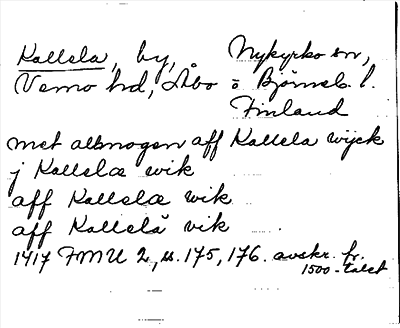 Kallela, by, Nykyrko sn,
Vemo hd, Åbo o Björneb. l.
Finland
met almogen aff Kallela wijck
j Kallelæ wik
aff Kallelæ wik
aff Kallelä vik
1417 FMU 2, s. 175, 176. avskr. fr.
1500-talet